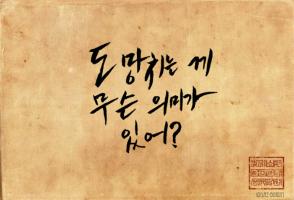 도망치는 게
무슨 의미가
있어?